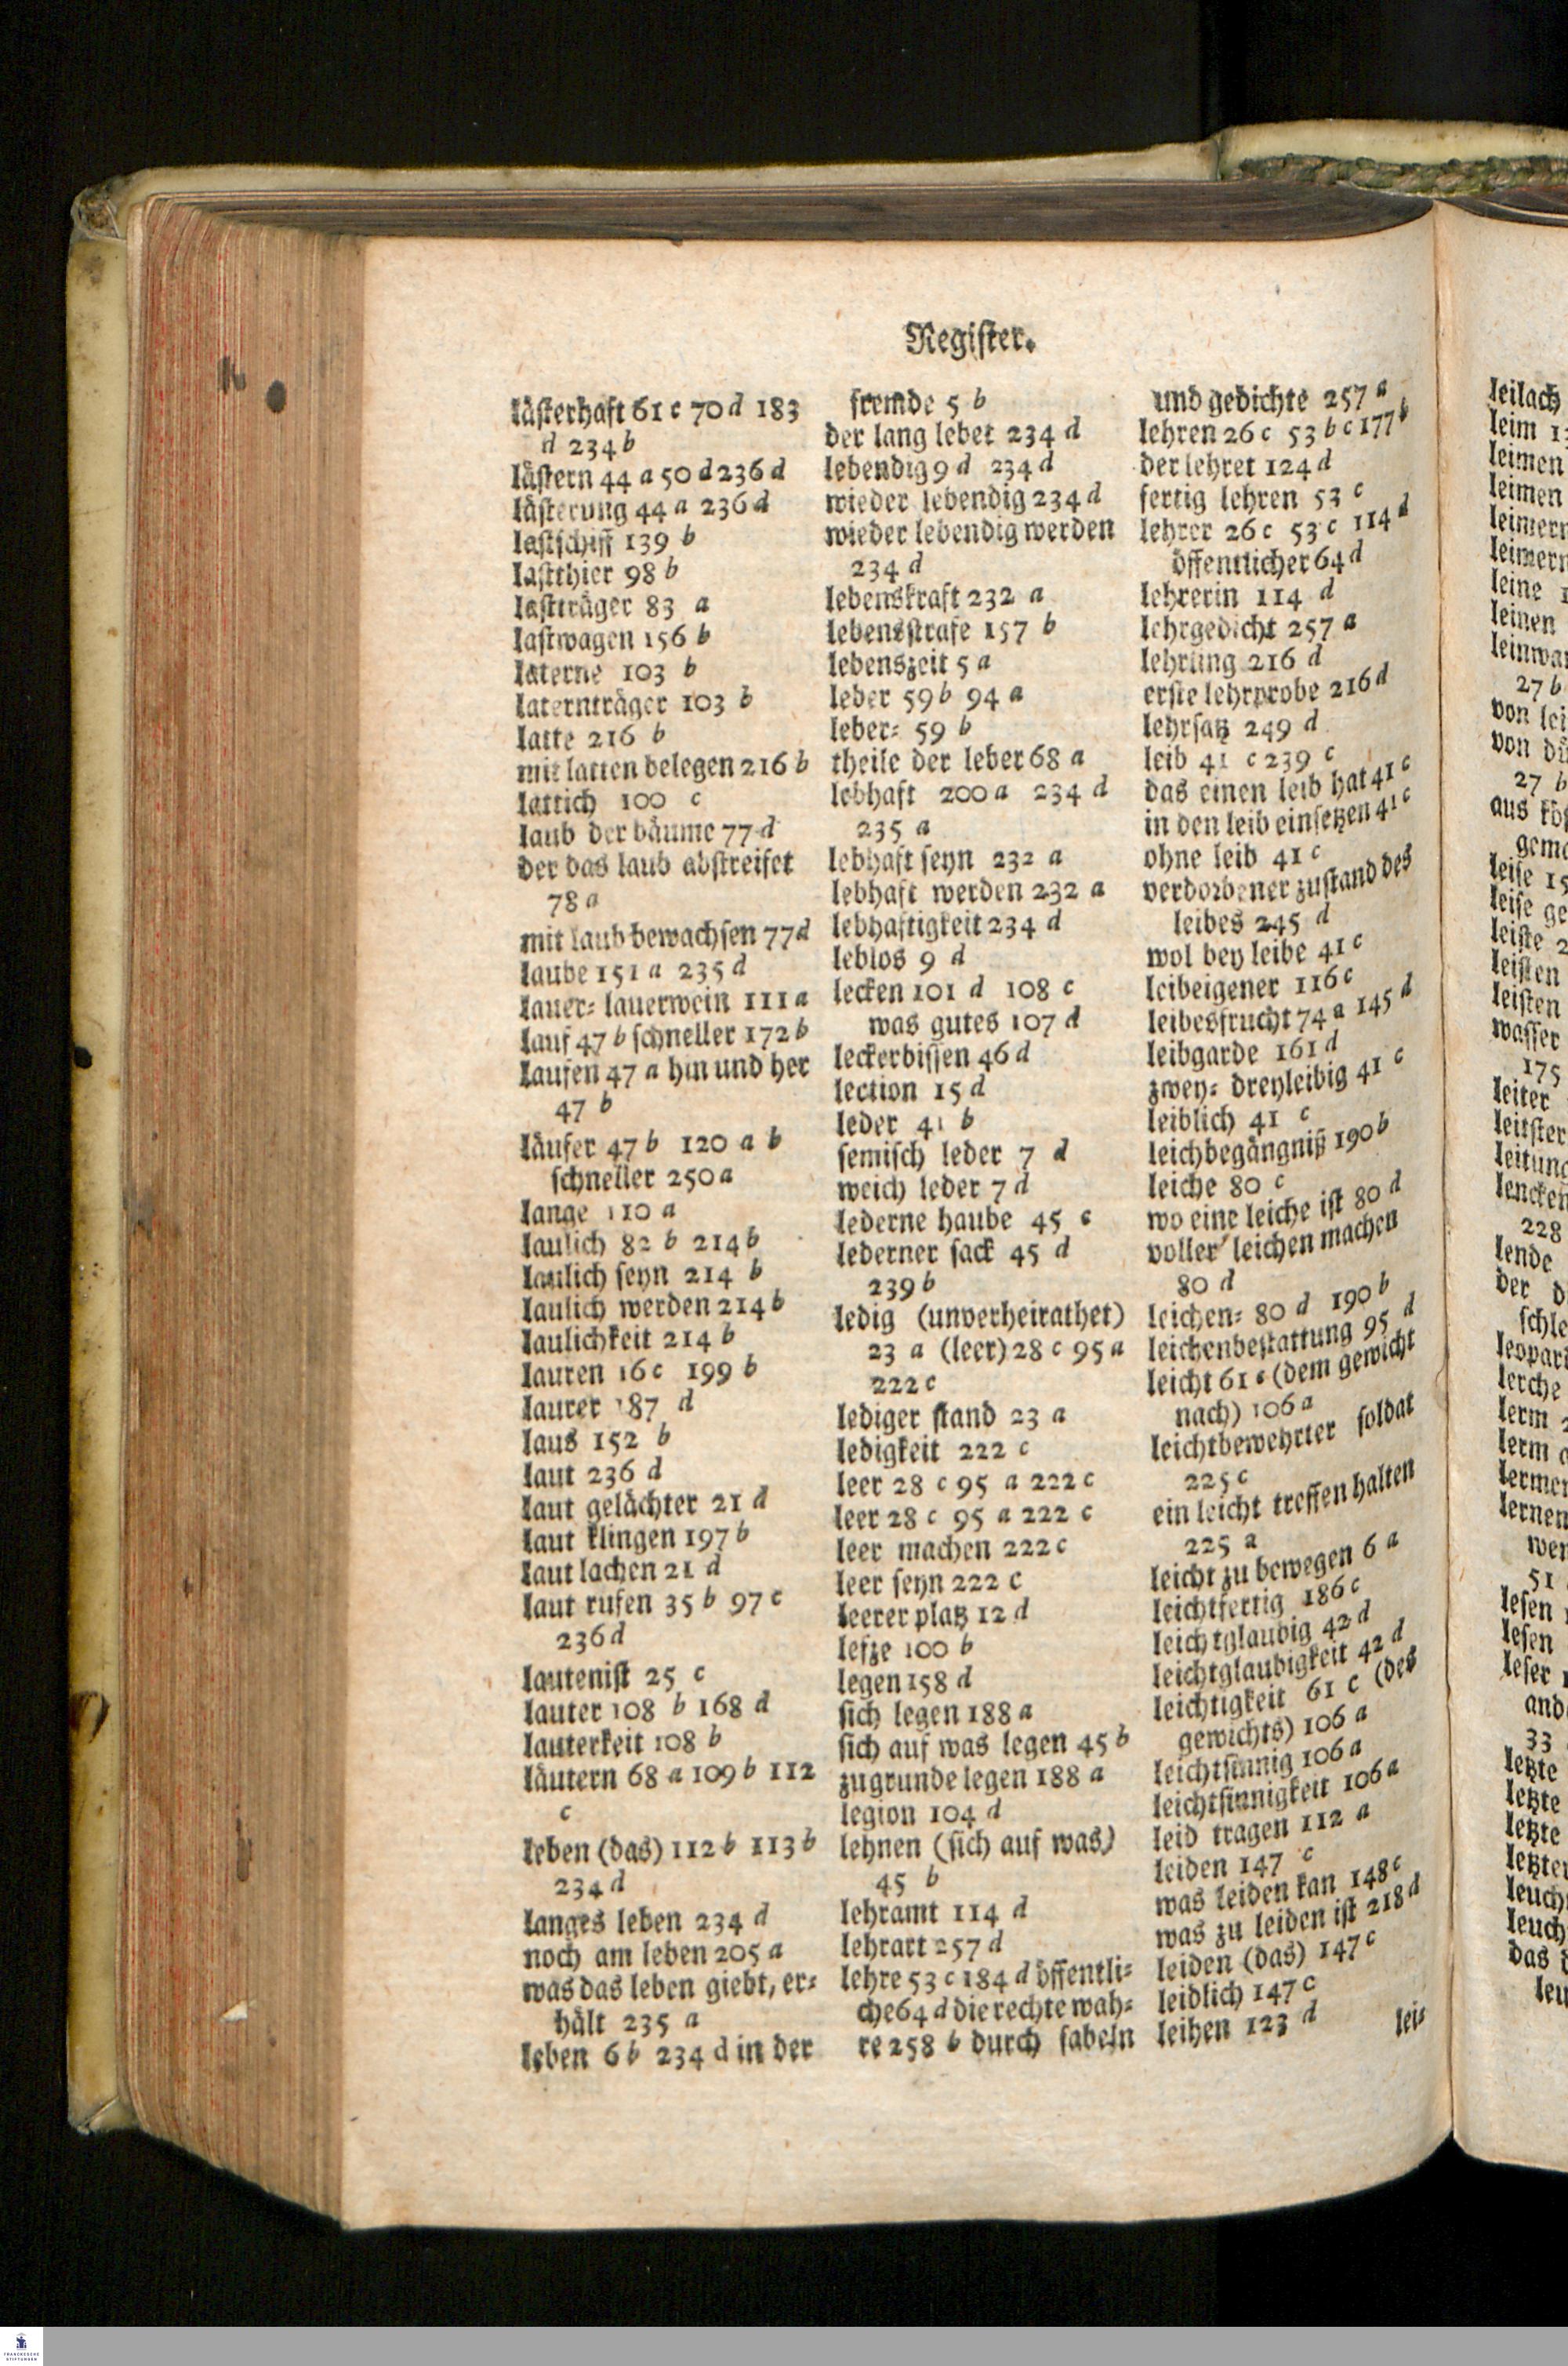 Register.
läſterhaft 61 c 70 d 183
d 234 b
läſtern 44 a 50 d 236 d
läſterung 44 a 236 d
laſtſchiff 139 b
laſtthier 98 b
laſtträger 83 a
laſtwagen 156 b
laterne 103 b
laternträger 103 b
latte 216 b
mit latten belegen 216 b
lattich 100 c
laub der bäume 77 d
der das laub abſtreifet
78 a
mit laub bewachſen 77 d
laube 151 a 235 d
lauer⸗ lauerwein 111 a
lauf 47 b ſchneller 172 b
laufen 47 a hin und her
47 b
läufer 47 b 120 a b
ſchneller 250 a
lange 110 a
laulich 82 b 214 b
laulich ſeyn 214 b
laulich werden 214 b
laulichkeit 214 b
lauren 16 c 199 b
laurer 187 d
laus 152 b
laut 236 d
laut gelächter 21 d
laut klingen 197 b
laut lachen 21 d
laut rufen 35 b 97 c
236 d
lauteniſt 25 c
lauter 108 b 168 d
lauterkeit 108 b
läutern 68 a 109 b 112
c
leben (das) 112 b 113 b
234 d
langes leben 234 d
noch am leben 205 a
was das leben giebt, er⸗
hält 235 a
leben 6 b 234 d in der
fremde 5 b
der lang lebet 234 d
lebendig 9 d 234 d
wieder lebendig 234 d
wieder lebendig werden
234 d
lebenskraft 232 a
lebensſtrafe 157 b
lebenszeit 5 a
leber 59 b 94 a
leber⸗ 59 b
theile der leber 68 a
lebhaft 200 a 234 d
235 a
lebhaft ſeyn 232 a
lebhaft werden 232 a
lebhaftigkeit 234 d
leblos 9 d
lecken 101 d 108 c
was gutes 107 d
leckerbiſſen 46 d
lection 15 d
leder 41 b
ſemiſch leder 7 d
weich leder 7 d
lederne haube 45 c
lederner ſack 45 d
239 b
ledig (unverheirathet)
23 a (leer) 28 c 95 a
222 c
lediger ſtand 23 a
ledigkeit 222 c
leer 28 c 95 a 222 c
leer 28 c 95 a 222 c
leer machen 222 c
leer ſeyn 222 c
leerer platz 12 d
lefze 100 b
legen 158 d
ſich legen 188 a
ſich auf was legen 45 b
zugrunde legen 188 a
legion 104 d
lehnen (ſich auf was)
45 b
lehramt 114 d
lehrart 257 d
lehre 53 c 184 d öffentli⸗
che 64 d die rechte wah⸗
re 258 b durch fabeln
und gedichte 257 a
lehren 26 c 53 b c 177 b
der lehret 124 d
fertig lehren 53 c
lehrer 26 c 53 c 114 d
öffentlicher 64 d
lehrerin 114 d
lehrgedicht 257 a
lehrling 216 d
erſte lehrprobe 216 d
lehrſatz 249 d
leib 41 c 239 c
das einen leib hat 41 c
in den leib einſetzen 41 c
ohne leib 41 c
verdorbener zuſtand des
leibes 245 d
wol bey leibe 41 c
leibeigener 116 c
leibesfrucht 74 a 145 d
leibgarde 161 d
zwey⸗ dreyleibig 41 c
leiblich 41 c
leichbegängniß 190 b
leiche 80 c
wo eine leiche iſt 80 d
voller leichen machen
80 d
leichen⸗ 80 d 190 b
leichenbeſtattung 95 d
leicht 61 c (dem gewicht
nach) 106 a
leichtbewehrter ſoldat
225 c
ein leicht treffen halten
225 a
leicht zu bewegen 6 a
leichtfertig 186 c
leichtglaubig 42 d
leichtglaubigkeit 42 d
leichtigkeit 61 c (des
gewichts) 106 a
leichtſinnig 106 a
leichtſinnigkeit 106 a
leid tragen 112 a
leiden 147 c
was leiden kan 148 c
was zu leiden iſt 218 d
leiden (das) 147 c
leidlich 147 c
leihen 123 d
lei⸗
leilach
leim
leimen
leimen
leine
leinen
27 b
von
27 b
aus
leiſe
leiſe
leiſte
leiſten
leiſten
waſſer
175
leiter
228
lende
der
lerche
lerm
lerm
51
leſen
leſen
leſer
33
letzte
letzte
letzte
das
FRANCKESCHE
STIFTUNGEN